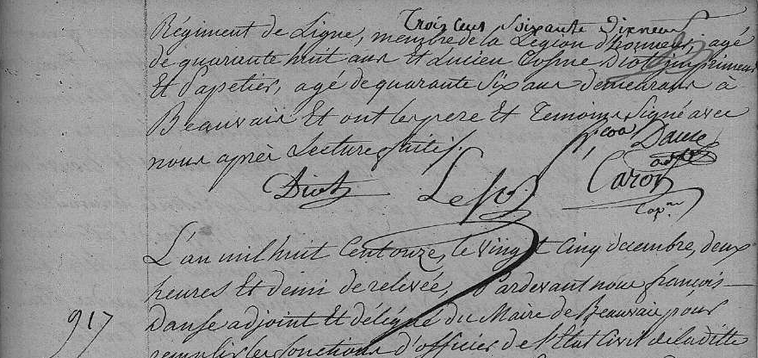 Trois cent soixante dixneuf
Régiment de Ligne, membre de la Légion d'honneur, agé
de quarante huit ans et Lucien Cosme Diot imprimeur
Et Papetier, agé de quarante Six ans demeurans à
Beauvais Et ont les pere et Temoins Signé avec
nous après Lecture faite.
Danse
adjt
Diot
Caron
Capne
L'an mil huit Cent onze, le vingt Cinq decembre, deux
heures Et demi de relevée, Pardevant nous françois
917
Danse adjoint et délégué du Maire de Beauvais pour
remplir les fonctions d'officier de l'Etat Civil de la ditte